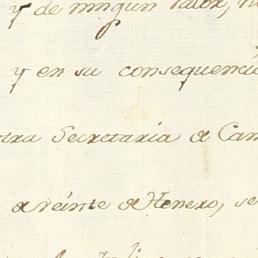 y de ningun valor,
y en su consequencia
Secretaria de Cam
a veinte de Henero, se